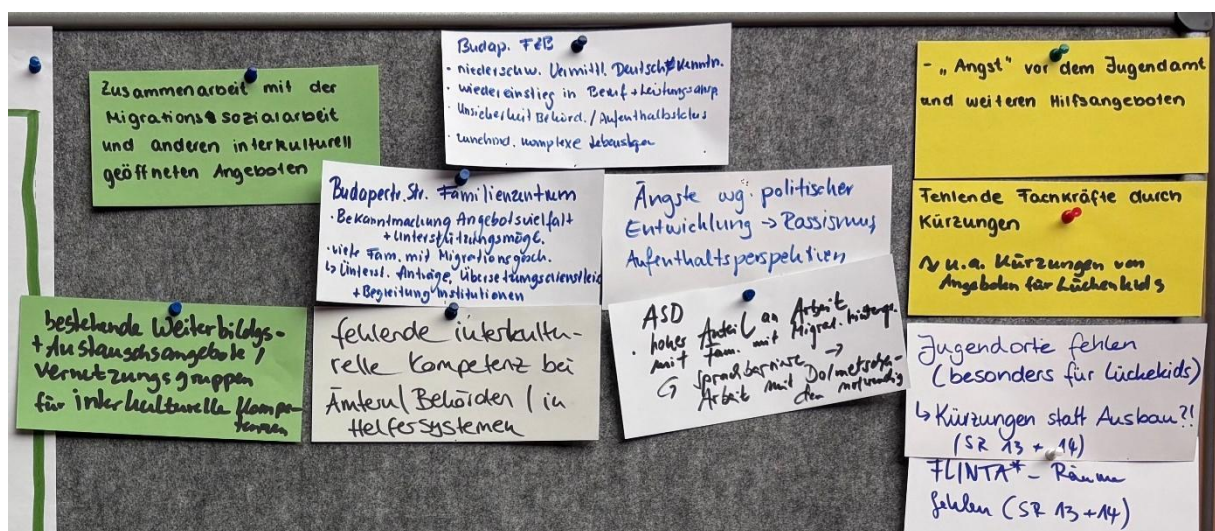 Zusammenarbeit mit der
Migrationssozialarbeit
und anderen interkulturell
geöffneten Angeboten
bestehende Weiterbildgs-
+ Austauschsangebote /
Vernetzungsgruppen
für interkulturelle Kompe-
tenzen
Budap. FZB
· niederschw. Vermittl. Deutsch Kenntn.
· wiedereinstieg in Beruf + Leistungsansp.
· Unsicherheit Behörd. / Aufenthaltsstatus
· zunehmd. komplexe Lebenslagen
Budapertr. Str. Familienzentrum
· Bekanntmachung Angebotsvielfalt
+ Unterstützungsmögl.
· viele Fam. mit Migrationsgesch.
↳ Unterst. Anträge, Übersetzungsdienstleis
+ Begleitung Institutionen
fehlende interkultu-
relle Kompetenz bei
Ämtern / Behörden / in
Helfersystemen
Ängste wg. politischer
Entwicklung → Rassismus
Aufenthaltsperspektiven
ASD
· hoher Anteil an Arbeit
mit Fam. mit Migrat.hintergr.
↳ Sprachbarriere →
Arbeit mit Dolmetschen-
den notwendig
- „Angst" vor dem Jugendamt
und weiteren Hilfsangeboten
Fehlende Fachkräfte durch
Kürzungen
~ u.a. Kürzungen von
Angeboten für Lückenkids
Jugendorte fehlen
(besonders für Lückekids)
↳ Kürzungen statt Ausbau?!
(SR 13 + 14)
FLINTA* - Räume
fehlen (SR 13 + 14)